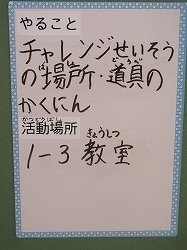 やること
チャレンジせいそう
の場所・道具の
かくにん
活動場所
1-3 教室
きょうしつ